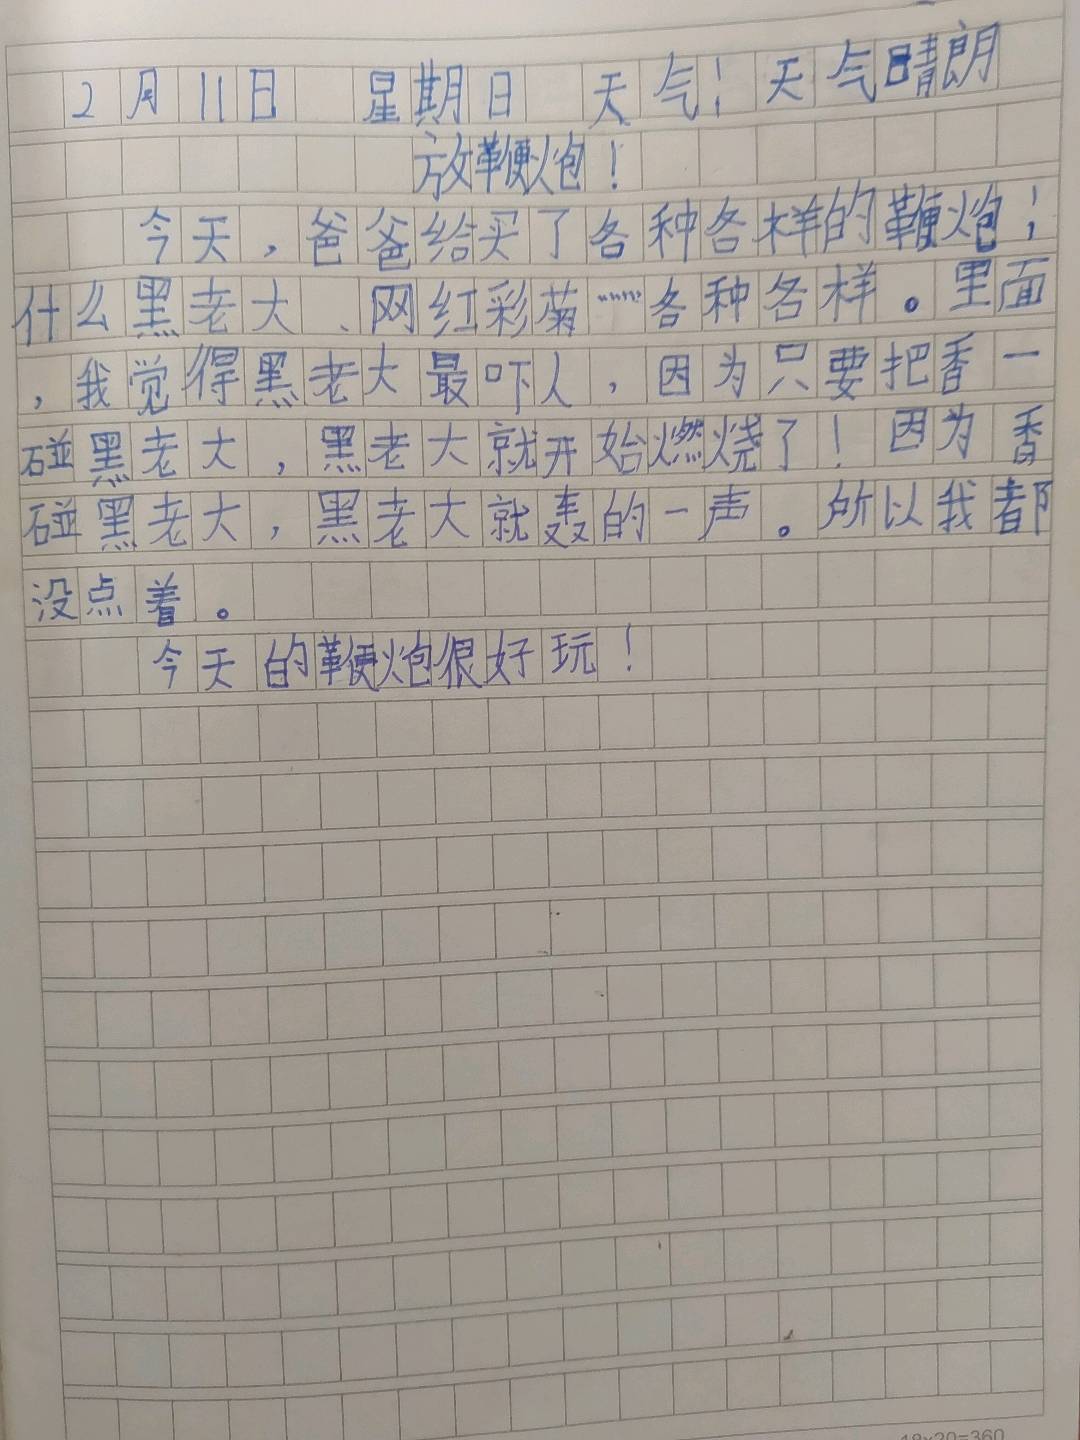 2月11日 星期日 天气：天气晴朗
放鞭炮！
今天，爸爸给买了各种各样的鞭炮；
什么黑老大、网红彩菊……各种各样。里面
，我觉得黑老大最吓人，因为只要把香一
碰黑老大，黑老大就开始燃烧了！因为香
碰黑老大，黑老大就轰的一声。所以我都
没点着。
今天的鞭炮很好玩！
18×20=360